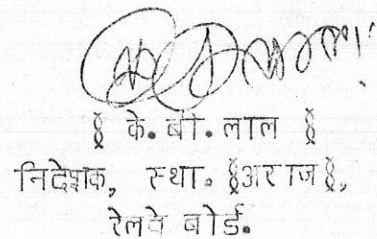 ( के. बी. लाल )
निदेशक, स्था. (अराज),
रेलवे बोर्ड.